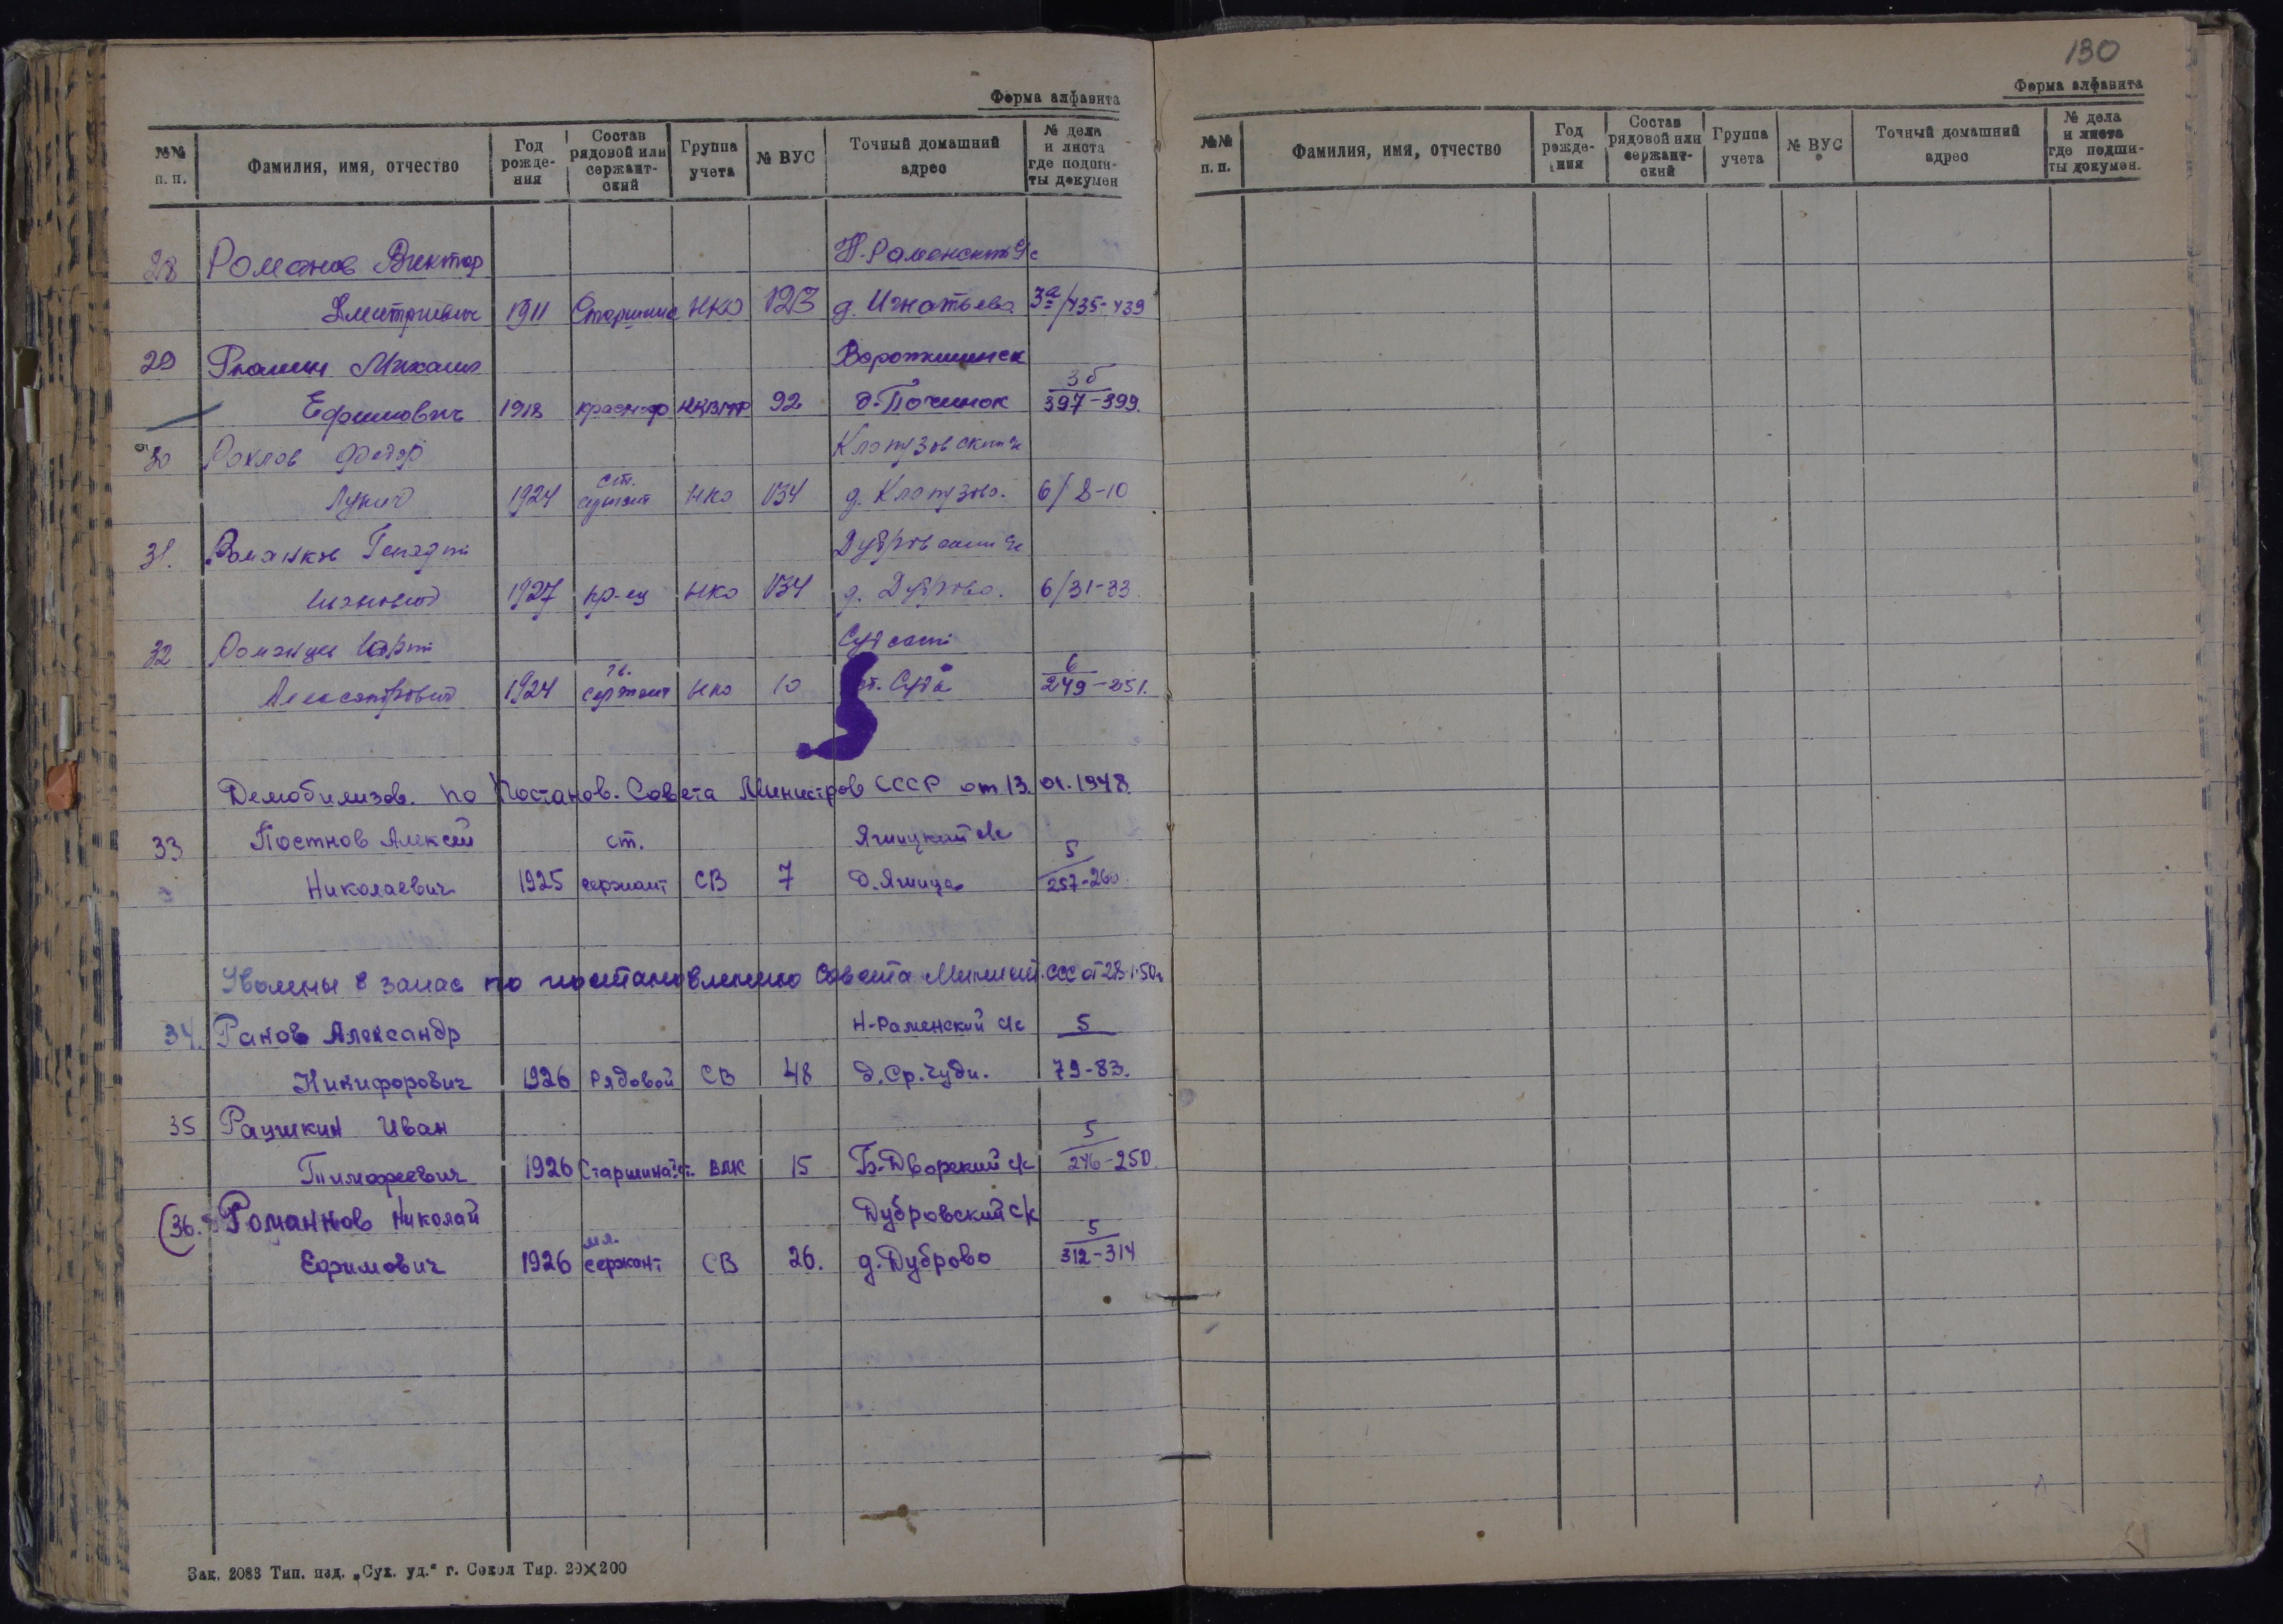 Форма алфавита
№№ п. п. Фамилия, имя, отчество Год рожде-ния Состав рядовой или сержант-ский Группа учета № ВУС Точный домашний адрес № дела и листа где подши-ты докумен
28 Романов Виктор Н.-Раменский с/с
Дмитриевич 1911 Старшина НКО 123 д. Игнатьево 3а/435-439
29 Михаил
Ефимович 1918 92 д. Починок 3б
397-399.
30 Рохлов Федор Клопузовский с/с
Лукич 1924 ст. сержант НКО 134 д. Клопузово. 6/8-10
31. Романков Генадий Дубровский с/с
Иванович 1927 кр-ец НКО 134 д. Дуброво. 6/31-33.
32 Судский
Александрович 1924 гв. сержант НКО 10 ст. Суда 6
249-251.
Демобилизов. по Постанов. Совета Министров СССР от 13. 01. 1948.
33 Постнов Алексей ст. Ягницкий с/с
Николаевич 1925 сержант СВ 7 д. Ягница 5
257-260.
Уволены в запас по постановлению Совета Минист. ССС от 28.1.50г
34. Ранов Александр Н-Раменский с/с 5
Никифорович 1926 Рядовой СВ 48 д. Ср. Чуди. 79-83.
35 Раушкин Иван 5
Тимофеевич 1926 Старшина 2 ст. ВМС 15 Б.-Дворский с/с 246-250.
36. Романнов Николай Дубровский с/с
Ефимович 1926 мл. сержант СВ 26. д. Дуброво 5
312-314
Зак. 2083 Тип. изд. „Сух. уд.“ г. Сокол Тир. 20×200
130
Форма алфавита
№№ п. п. Фамилия, имя, отчество Год рожде-ния Состав рядовой или сержант-ский Группа учета № ВУС Точный домашний адрес № дела и листа где подши-ты докумен.